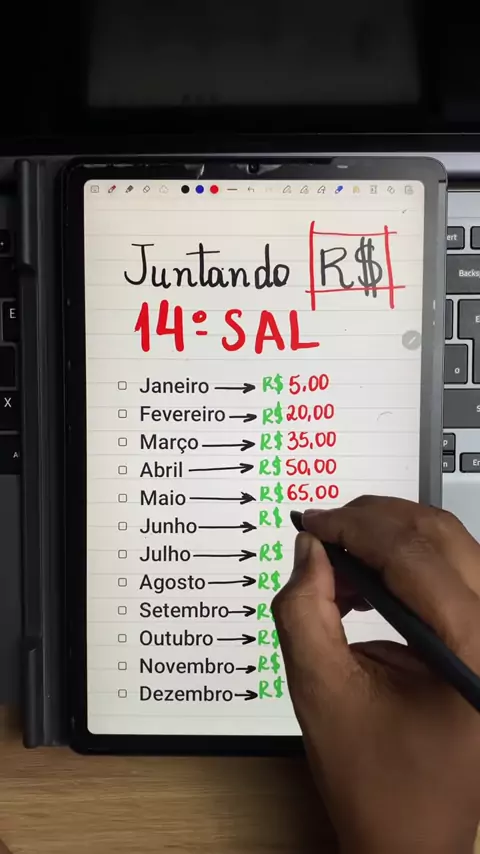 Juntando R$
14º SAL
Janeiro → R$ 5.00
Fevereiro → R$ 20,00
Março → R$ 35,00
Abril → R$ 50,00
Maio → R$ 65,00
Junho → R$
Julho → R$
Agosto → R$
Setembro → R$
Outubro → R$
Novembro → R$
Dezembro → R$